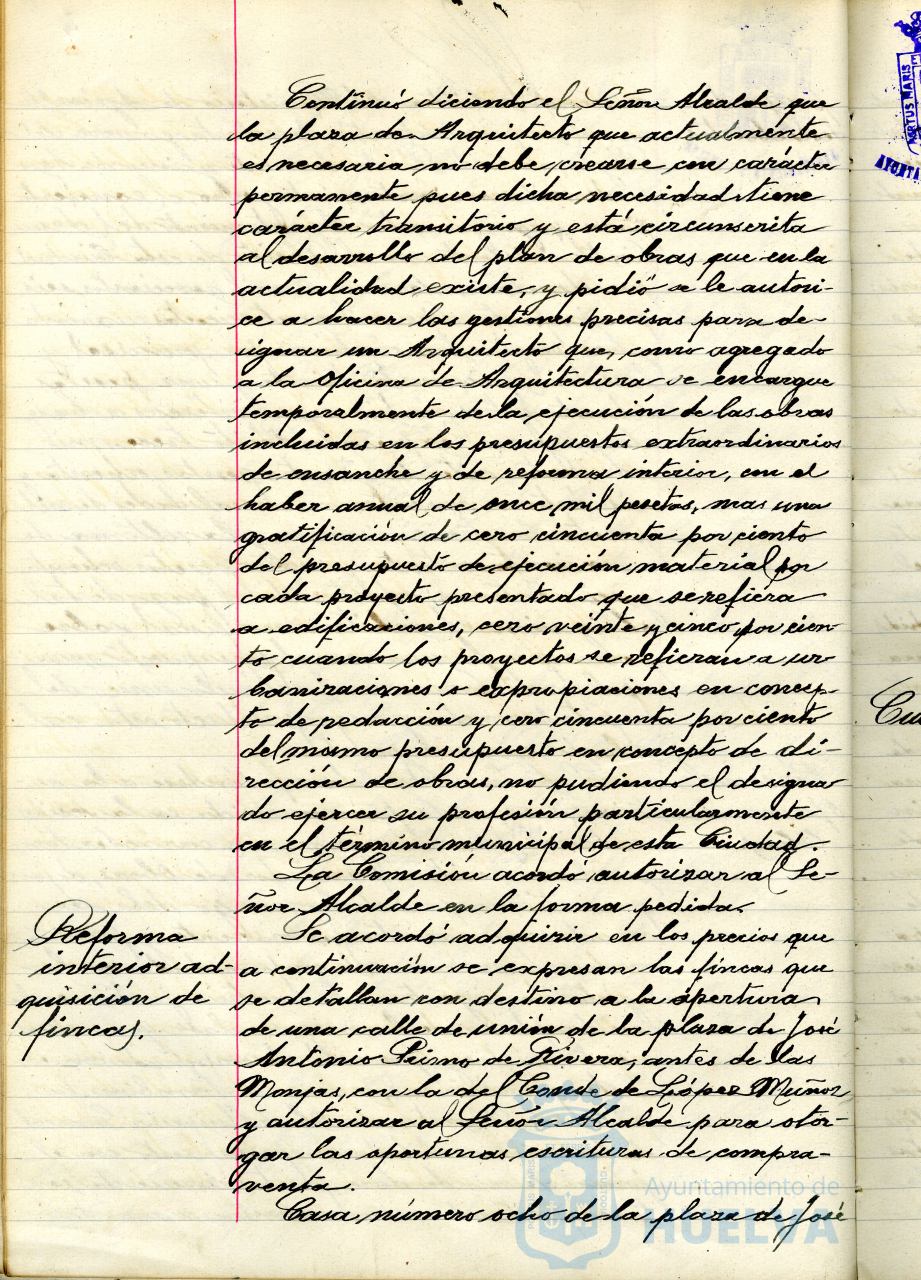 Continuó diciendo el Señor Alcalde que
la plaza de Arquitecto que actualmente
es necesaria no debe crearse con carácter
permanente pues dicha necesidad tiene
carácter transitorio y está circunscrita
al desarrollo del plan de obras que en la
actualidad existe, y pidió se le autori-
ce a hacer las gestiones precisas para de-
signar un Arquitecto que, como agregado
a la Oficina de Arquitectura se encargue
temporalmente de la ejecución de las obras
incluidas en los presupuestos extraordinarios
de ensanche y de reforma interior, con el
haber anual de once mil pesetas, mas una
gratificación de cero cincuenta por ciento
del presupuesto de ejecución material por
cada proyecto presentado que se refiera
a edificaciones, cero veinte y cinco por cien-
to cuando los proyectos se refieran a ur-
banizaciones o expropiaciones en concep-
to de redacción y cero cincuenta por ciento
del mismo presupuesto en concepto de di-
rección de obras, no pudiendo el designa-
do ejercer su profesión particularmente
en el término municipal de esta Ciudad.
La Comisión acordó autorizar al Se-
ñor Alcalde en la forma pedida.
Reforma
interior ad-
quisición de
fincas.
Se acordó adquirir en los precios que
a continuación se expresan las fincas que
se detallan con destino a la apertura
de una calle de unión de la plaza de José
Antonio Primo de Rivera, antes de las
Monjas, con la del Conde de López Muñoz
y autorizar al Señor Alcalde para otor-
gar las oportunas escrituras de compra-
venta.
Casa número ocho de la plaza de José
Ayuntamiento de
HUELVA